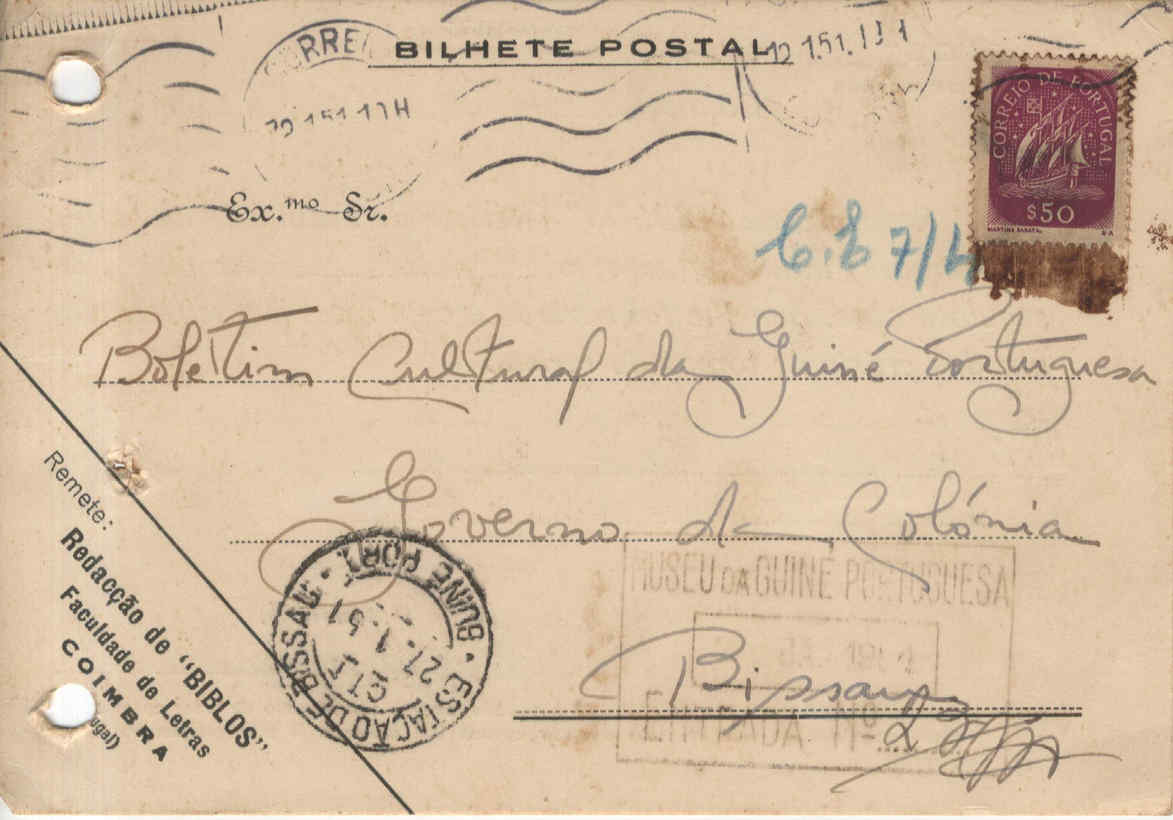 BILHETE POSTAL
CORREI
12 1.51.
CORREIO DE PORTUGAL
$50
MARTINS BARATA
Ex.mo Sr.
C.E 7/4
Boletim Cultural da Guiné Portuguesa
Governo da Colónia
Bissau
MUSEU DA GUINÉ PORTUGUESA
ENTRADA Nº
ESTAÇÃO DE BISSAU · GUINÉ PORT.
27.1.51
Remete:
Redacção de "BIBLOS"
Faculdade de Letras
COIMBRA